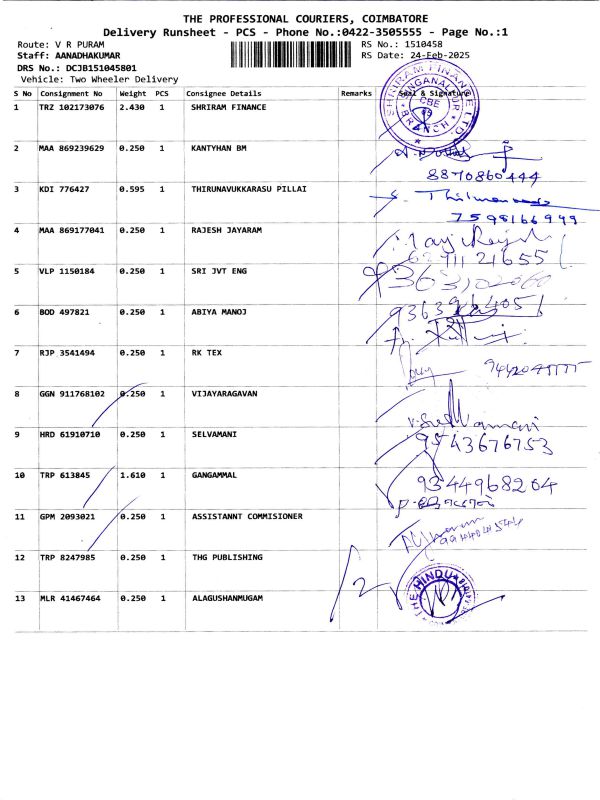 THE PROFESSIONAL COURIERS, COIMBATORE
Delivery Runsheet - PCS - Phone No.:0422-3505555 - Page No.:1
Route: V R PURAM
RS No.: 1510458
Staff: AANADHAKUMAR
RS Date: 24-Feb-2025
DRS No.: DCJB151045801
Vehicle: Two Wheeler Delivery
S No Consignment No Weight PCS Consignee Details Remarks Seal & Signature
1 TRZ 102173076 2.430 1 SHRIRAM FINANCE
SHRIRAM FINANCE LTD.
CBE
BRANCH
2 MAA 869239629 0.250 1 KANTYHAN BM
8870860444
3 KDI 776427 0.595 1 THIRUNAVUKKARASU PILLAI
7598166999
4 MAA 869177041 0.250 1 RAJESH JAYARAM
5 VLP 1150184 0.250 1 SRI JVT ENG
6 BOD 497821 0.250 1 ABIYA MANOJ
7 RJP 3541494 0.250 1 RK TEX
8 GGN 911768102 0.250 1 VIJAYARAGAVAN
9 HRD 61910710 0.250 1 SELVAMANI
9543676753
10 TRP 613845 1.610 1 GANGAMMAL
9344968204
11 GPM 2093021 0.250 1 ASSISTANNT COMMISIONER
12 TRP 8247985 0.250 1 THG PUBLISHING
12
THE HINDU
13 MLR 41467464 0.250 1 ALAGUSHANMUGAM